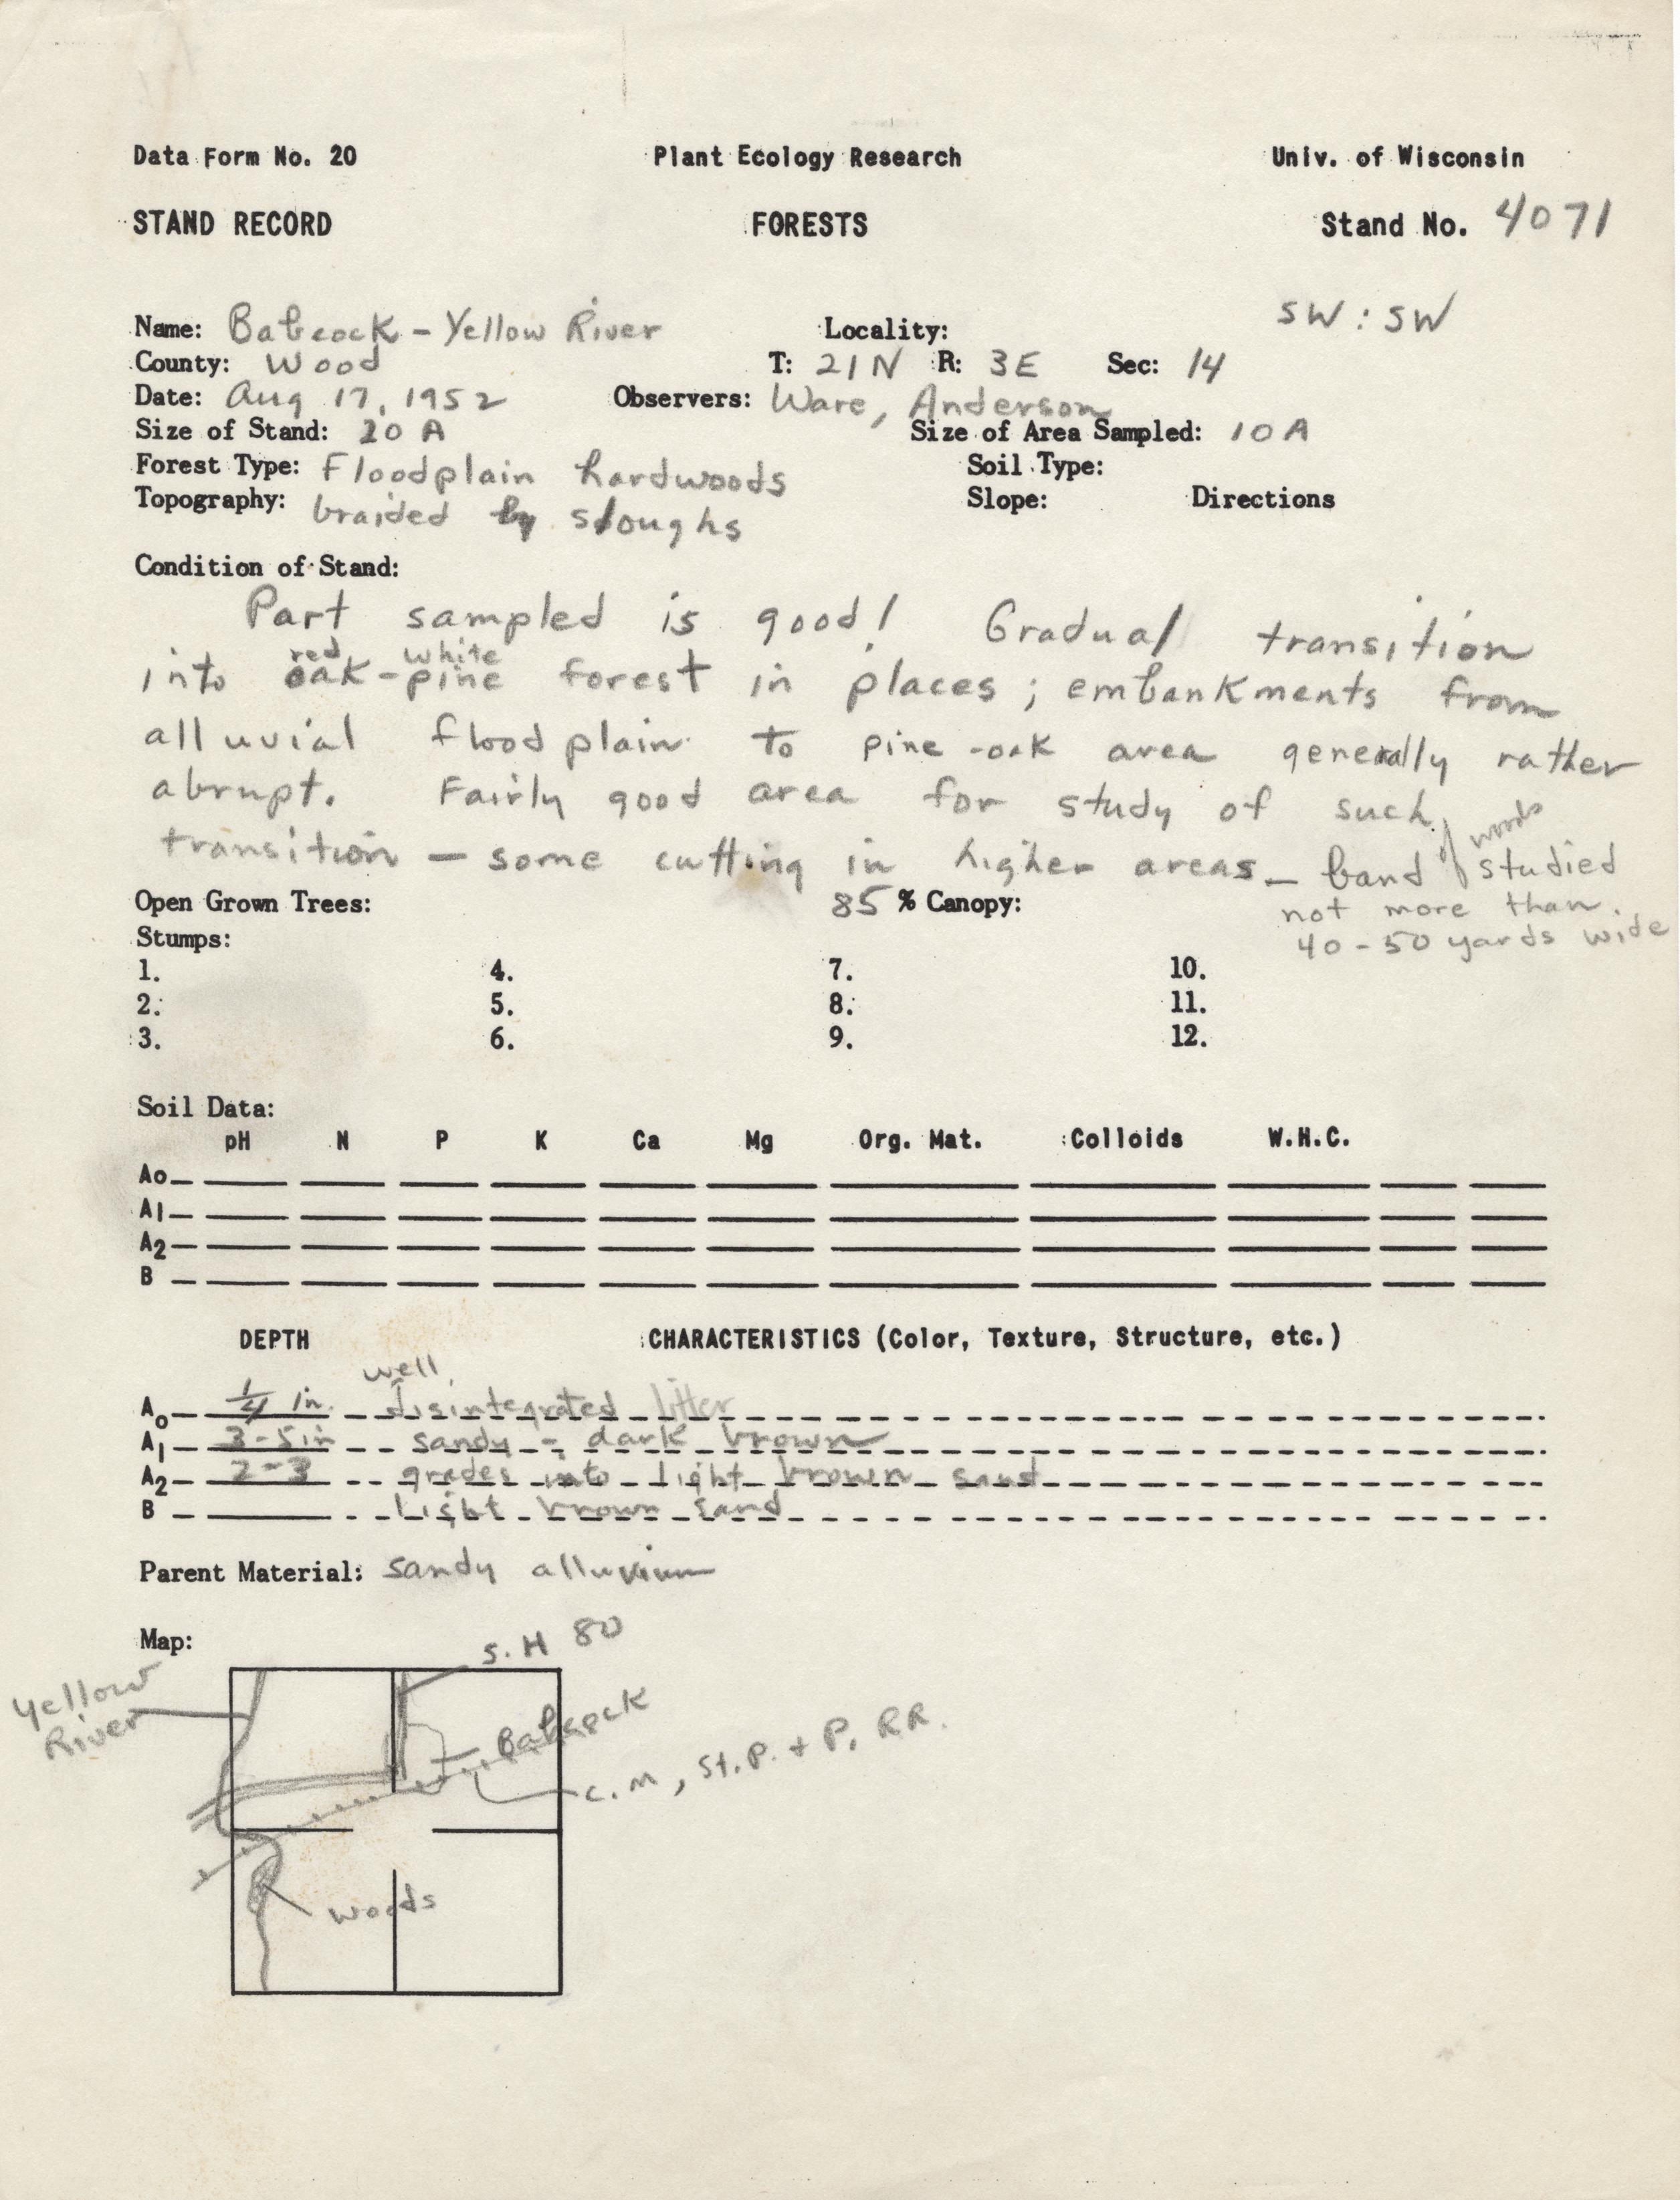 Data Form No. 20 Plant Ecology Research Univ. of Wisconsin
STAND RECORD FORESTS Stand No. 4071
SW : SW
Name: Babcock - Yellow River Locality:
County: Wood T: 21N R: 3E Sec: 14
Date: Aug 17, 1952 Observers: Ware, Anderson
Size of Stand: 20 A Size of Area Sampled: 10 A
Forest Type: Floodplain hardwoods Soil Type:
Topography: braided by sloughs Slope: Directions
Condition of Stand:
Part sampled is good! Gradual transition
red white
into oak-pine forest in places; embankments from
alluvial floodplain to pine-oak area generally rather
abrupt. Fairly good area for study of such
transition — some cutting in higher areas — band of woods studied
not more than
40-50 yards wide
Open Grown Trees: 85 % Canopy:
Stumps:
1. 4. 7. 10.
2. 5. 8. 11.
3. 6. 9. 12.
Soil Data:
pH N P K Ca Mg Org. Mat. Colloids W.H.C.
Ao
A1
A2
B
DEPTH CHARACTERISTICS (Color, Texture, Structure, etc.)
well
Ao 1/4 in. disintegrated litter
A1 3-5 in sandy - dark brown
A2 2-3 grades into light brown sand
B light brown sand
Parent Material: sandy alluvium
Map:
S. H 80
Yellow
River
Babcock
C. M, St. P. + P. RR.
woods